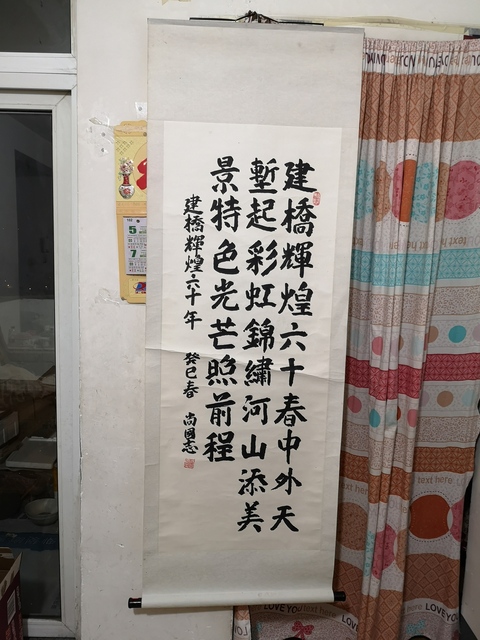 建橋輝煌六十春中外天
塹起彩虹錦繡河山添美
景特色光芒照前程
建橋輝煌六十年
癸巳春
尚國志
5
7
LOVE YOU
text here
text here
text here
LOVE YOU
text here
LOVE